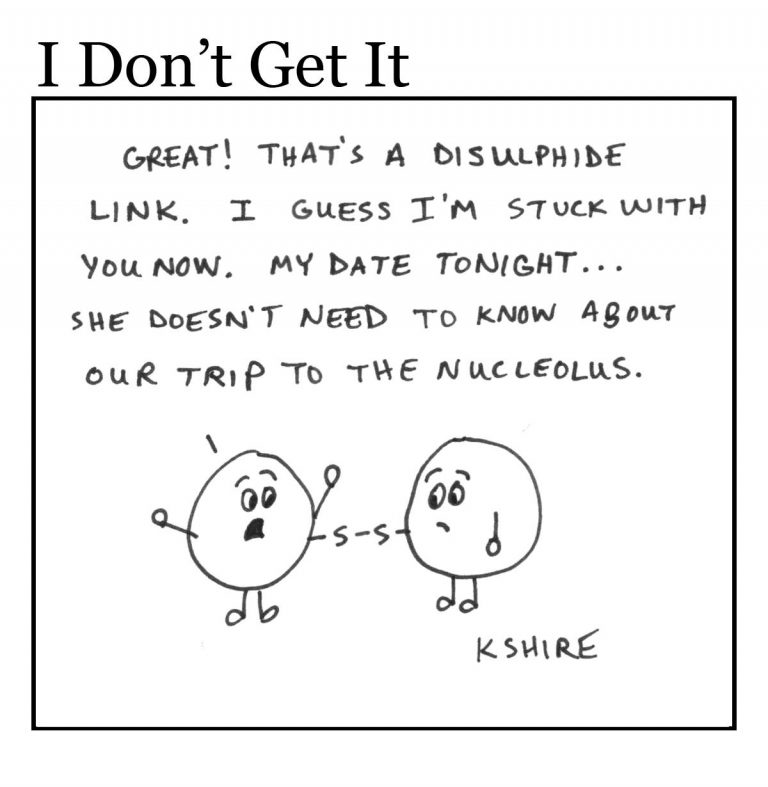 I Don’t Get It
GREAT! THAT'S A DISULPHIDE
LINK. I GUESS I'M STUCK WITH
YOU NOW. MY DATE TONIGHT...
SHE DOESN'T NEED TO KNOW ABOUT
OUR TRIP TO THE NUCLEOLUS.
-S-S-
KSHIRE